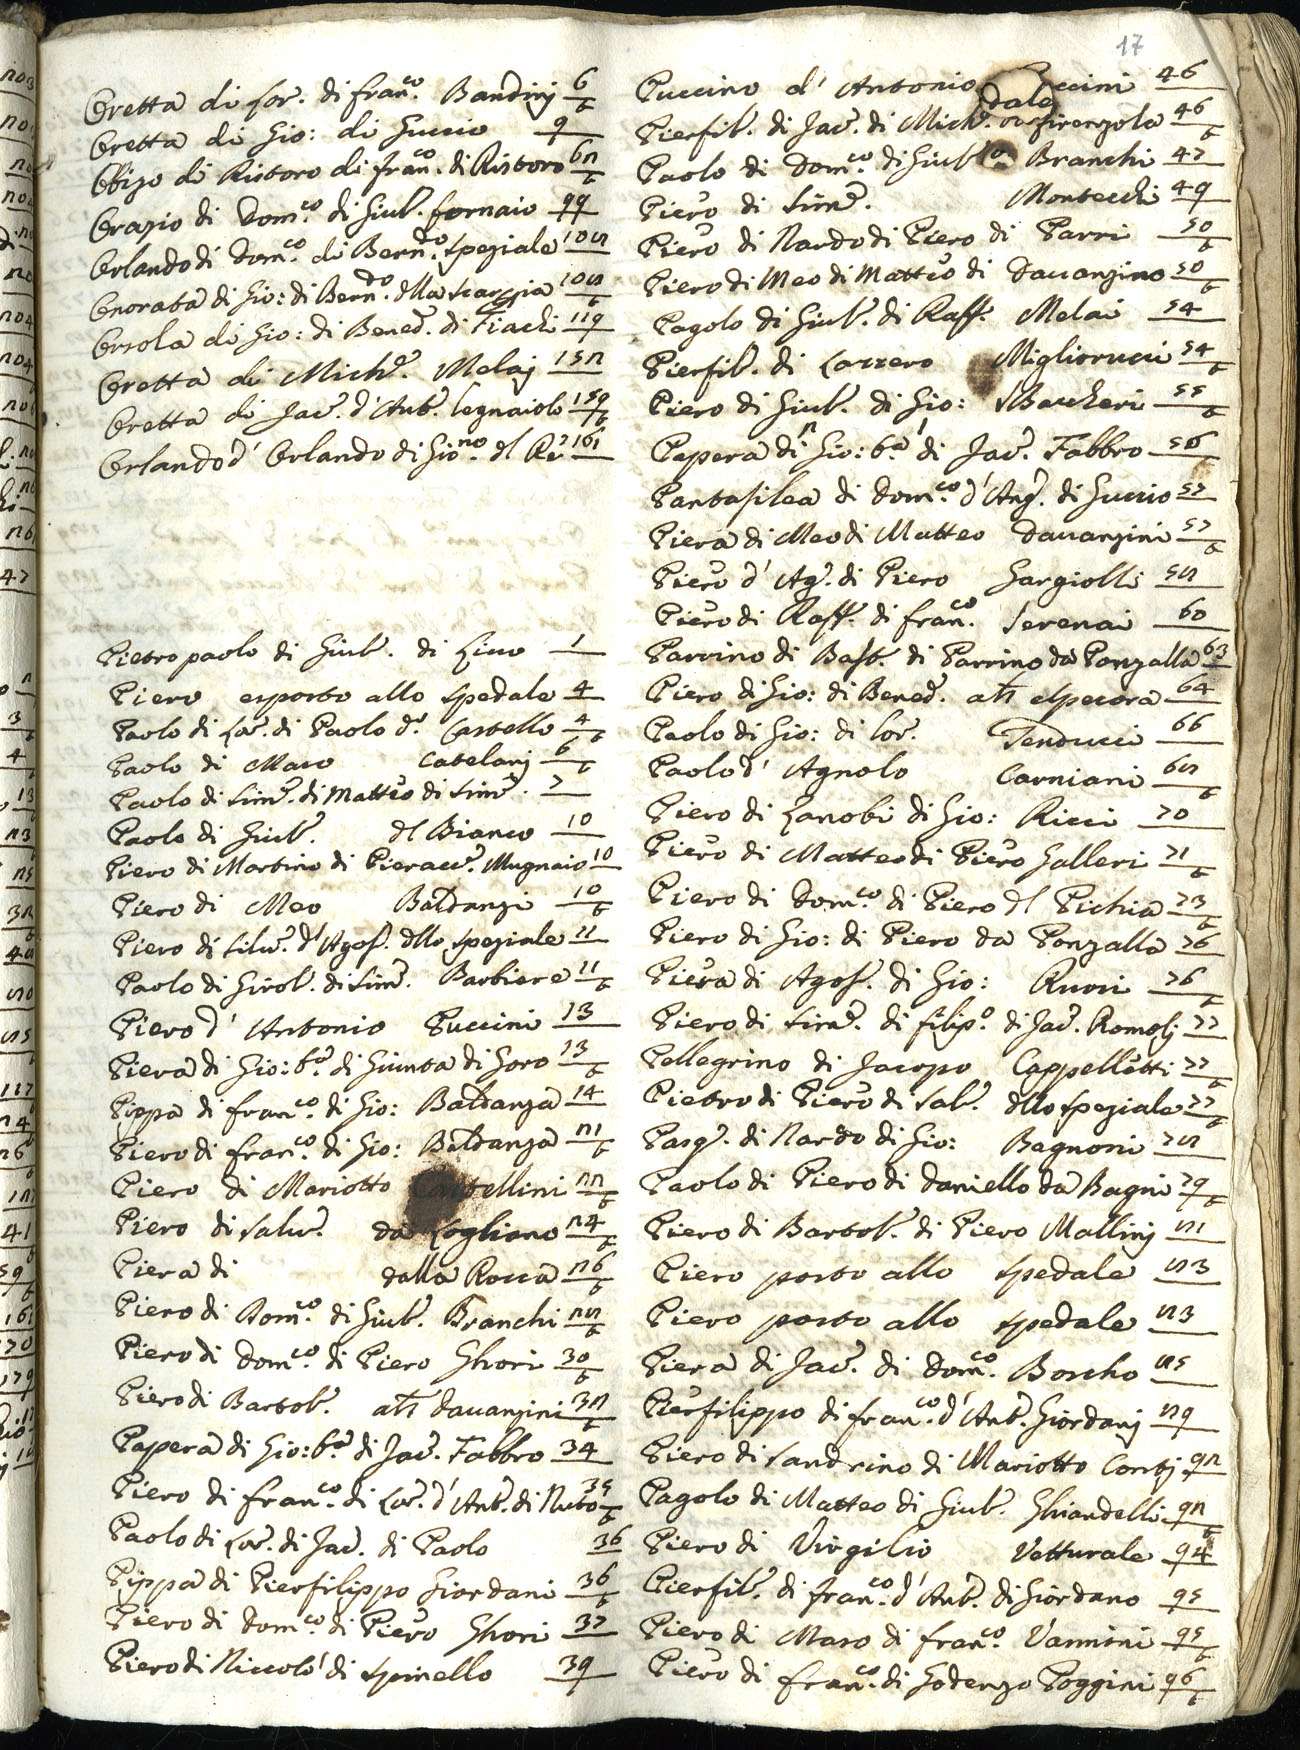 17
Oretta di Lor. di Fran.co Bandinj 6/t
Oretta di Gio: di Guccio 9
Obizo di Ristoro di Fran.co di Ristoro 62/t
Orazio di Dom.co di Giul. fornaio 99
Orlando di Dom.co di Bern.do speziale 108
Onorata di Gio: di Bern.do dlla scarpia 108/t
Orsola di Gio: di Bened. di Fiachi 119
Oretta di Mich.e Melaj 152
Oretta di Jac. d' Ant. legnaiolo 159/t
Orlando d' Orlando di Gio.no dl Re 161
Pietro paolo di Giul. di Lino 1
Piero esposto allo spedale 4
Paolo di Lor. di Paolo d. Castello 4/t
Paolo di Maso Catelanj 6/t
Paolo di Sim.e di Matteo di Sim.e 7
Paolo di Giul. dl Bianco 10
Piero di Martino di Pieracc. Mugnaio 10
Piero di Meo Baldanzi 10/t
Piero di Silu. d' Agos. dllo speziale 11
Paolo di Girol. di Sim.e Barbiere 11/t
Piero d' Antonio Puccini 13
Piera di Gio: b.a di Giunta di Goro 13/t
Pippa di Fran.co di Gio: Baldanza 14
Piero di Fran.co di Gio: Baldanza 21/t
Piero di Mariotto Castellini 22/t
Piero di Salu. da Logliano 24/t
Piera di dalla Rocca 26/t
Piero di Dom.co di Giul. Branchi 28/t
Piero di Dom.co di Piero Ghori 30/t
Piero di Bartol. alt Dauanzini 32/t
Papera di Gio: b.a di Jac. Fabbro 34
Piero di Fran.co di Lor. d' Ant. di Nuto 35/t
Paolo di Lor. di Jac. di Paolo 36
Pippa di Pierfilippo Giordani 36/t
Piero di Dom.co di Piero Ghori 37
Piero di Niccolò di Spinello 39
Puccino d' Antonio Puccini 46
Pierfil. di Jac. di Mich. dale firenzola 46/t
Paolo di Dom.co di Giul. Branchi 47
Piero di Sim.e Montecchi 49
Piero di Nardo di Piero di Parri 50/t
Piero di Meo di Matteo di Dauanzino 50/t
Pagolo di Giul. di Raff. Melai 54
Pierfil. di Lazzero Migliorucci 54/t
Piero di Giul. di Gio: Baccheri 55/t
Papera di Gio: b.a di Jac. Fabbro 56
Pantasilea di Dom.co d' Ang. di Guccio 57
Piera di Meo di Matteo Dauanzini 57/t
Piero d' Ag. di Piero Gargiolli 58
Piero di Raff. di Fran.co Serenai 60
Parrino di Bast. di Parrino da Ponzalla 63
Piero di Gio: di Bened. alt elpecora 64
Paolo di Gio: di Lor. Tenducci 66
Paolo d' Agnolo Carniani 68/t
Piero di Zanobi di Gio: Ricci 70
Piero di Matteo di Piero Galleri 71/t
Piero di Dom.co di Piero dl Pichia 73/t
Piero di Gio: di Piero da Ponzalla 76
Piera di Agos. di Gio: Ruosi 76/t
Piero di Sim.e di Filip.o di Jac. Romolj 77
Pellegrino di Jacopo Cappelletti 77/t
Pietro di Piero di Salu. dllo speziale 77/t
Pasq. di Nardo di Gio: Bagnoni 78
Paolo di Piero di Daniello da Bagni 79/t
Piero di Bartol. di Piero Mallinj 81
Piero posto allo spedale 83
Piero posto allo spedale 83
Piera di Jac. di Dom.co Boscho 85
Pierfilippo di Fran.co d' Ant. Giordanj 89
Piero di Sandrino di Mariotto Contj 92
Pagolo di Matteo di Giul. Ghiandelli 92/t
Piero di Virgilio Vetturale 94
Pierfil. di Fran.co d' Ant. di Giordano 95
Piero di Maso di Fran.co Vannini 95/t
Piero di Fran.co di Godenzo Poggini 96/t